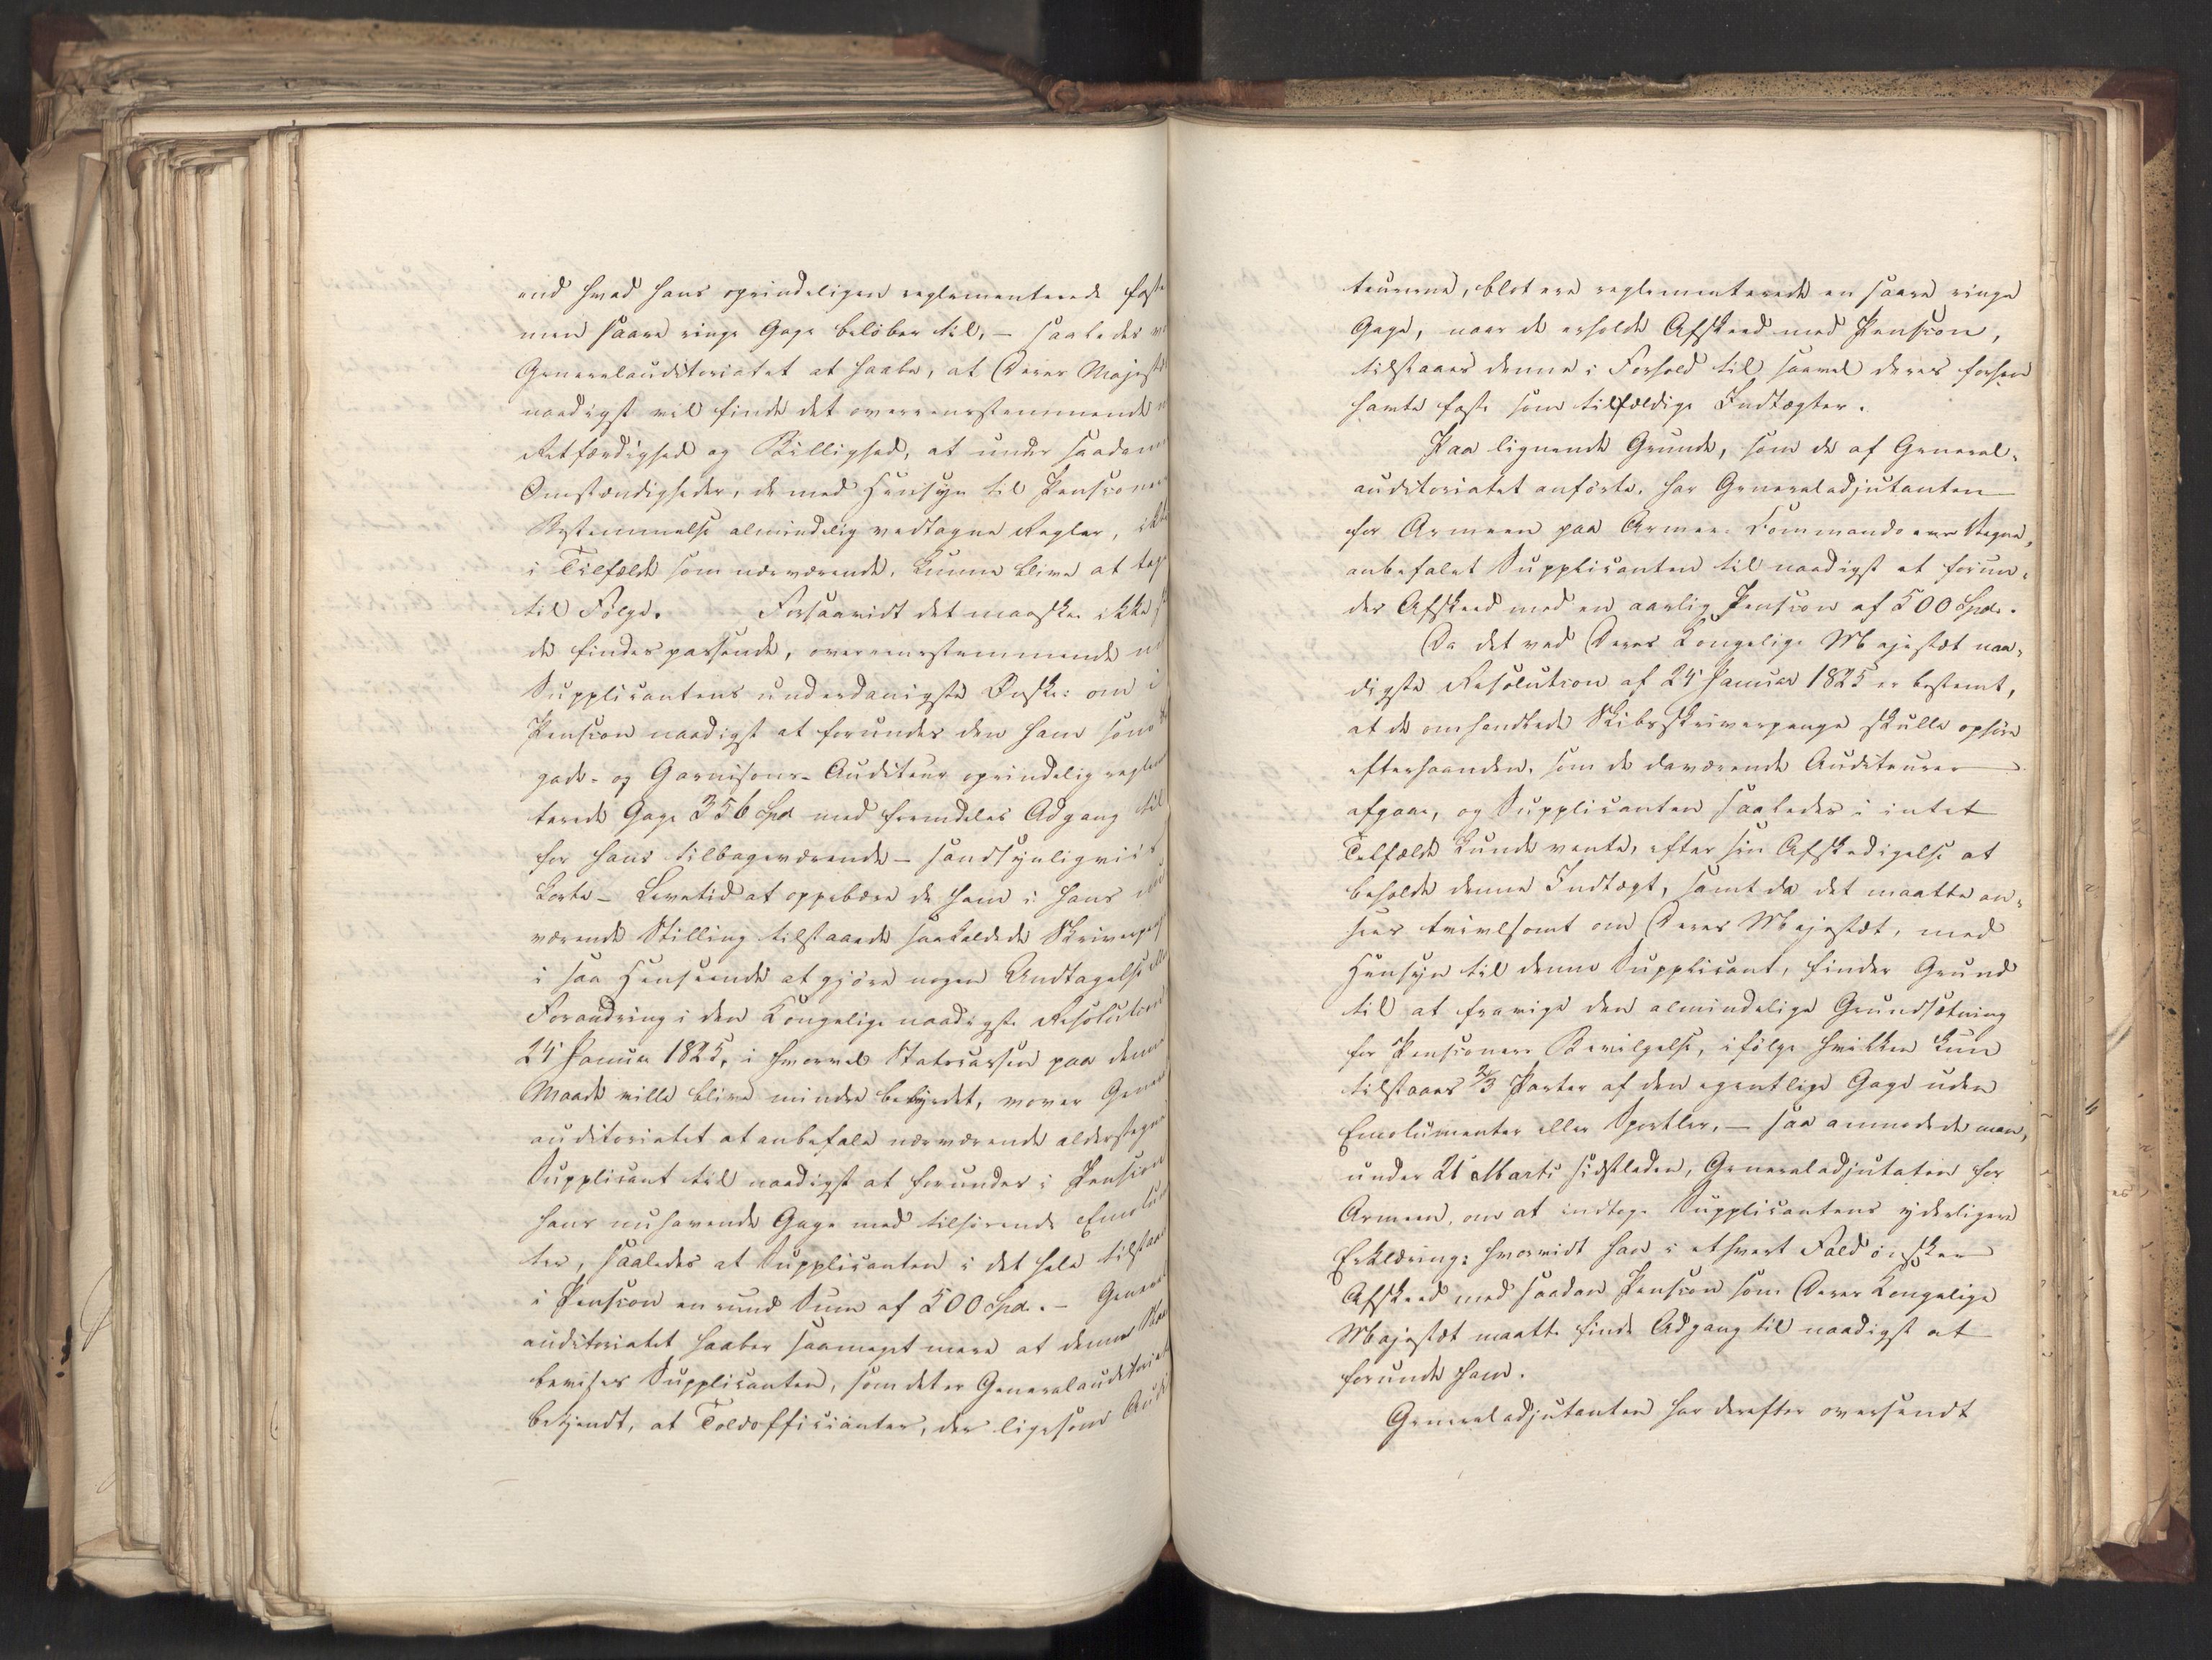 end hvad hans oprindeligen reglementerede faste
men saare ringe Gage beløber til, – saaledes
Generalauditoriatet at haabe, at Deres Majestæt
naadigst vil finde det overeensstemmende
Retfærdighed og Billighed, at under saadanne
Omstændigheder, de med Hensyn til Pensioners
Bestemmelse almindelig vedtagne Regler, ikke
i Tilfælde som nærværende, kunne blive at tage
til Følge. Forsaavidt det maaskee ikke
de findes passende, overeensstemmende
Supplicantens underdanigste Ønske: om i
Pension naadigst at forundes den ham som
gade- og Garnisons-Auditeur oprindelig reglemen
terede Gage 356 Spd med fremdeles Adgang til
for hans tilbageværende – sandsynligviis
korte – Levetid at oppebære de ham i hans
værende Stilling tilstaaede saakaldede Skriverpenge
i saa Henseende at gjøre nogen Undtagelse eller
Forandring i den Kongelige naadigste Resolution
24' Januar 1825, i hvorvel Statscassen paa denne
Maade ville blive mindre bebyrdet, vover General
auditoriatet at anbefale nærværende alderstegne
Supplicant til naadigst at forundes i Pension
hans nuhavende Gage med tilhørende Emolumen
ter, saaledes at Supplicanten i det hele tilstaaes
i Pension en rund Sum af 500 Spd. – General
auditoriatet haaber saameget mere at denne
bevises Supplicanten, som det er Generalauditoriatet
bekjendt, at Toldofficianter, der ligesom Audi
teurerne, blot ere reglementerede en saare ringe
Gage, naar de erholde Afskeed med Pension,
tilstaaes denne i Forhold til saavel deres forhen
havte faste som tilfældige Indtægter.
Paa lignende Grunde, som de af General-
auditoriatet anførte, har Generaladjutanten
for Armeen paa Armee-Commandoens Vegne,
anbefalet Supplicanten til naadigst at forun-
des Afskeed med en aarlig Pension af 500 Spd.
Da det ved Deres Kongelige Majestæt naa-
digste Resolution af 24' Januar 1825 er bestemt,
at de omhandlede Skibsskriverpenge skulle ophøre
efterhaanden, som de daværende Auditeurer
afgaae, og Supplicanten saaledes i intet
Tilfælde kunde vente, efter sin Afskedigelse at
beholde denne Indtægt, samt da det maatte an-
sees tvivlsomt om Deres Majestæt, med
Hensyn til denne Supplicant, finder Grund
til at fravige den almindelige Grundsætning
for Pensioners Bevilgelse, ifølge hvilken kun
tilstaaes 2/3 Parter af den egentlige Gage uden
Emolumenter eller Sportler, – saa anmodede man,
under 21' Marts sidstleden, Generaladjutaten for
Armeen, om at indtage Supplicantens yderligere
Erklæring: hvorvidt han i ethvert Fald ønsker
Afskeed med saadan Pension som Deres Kongelige
Majestæt maatte finde Adgang til naadigst at
forunde ham.
Generaladjutanten har derefter oversendt